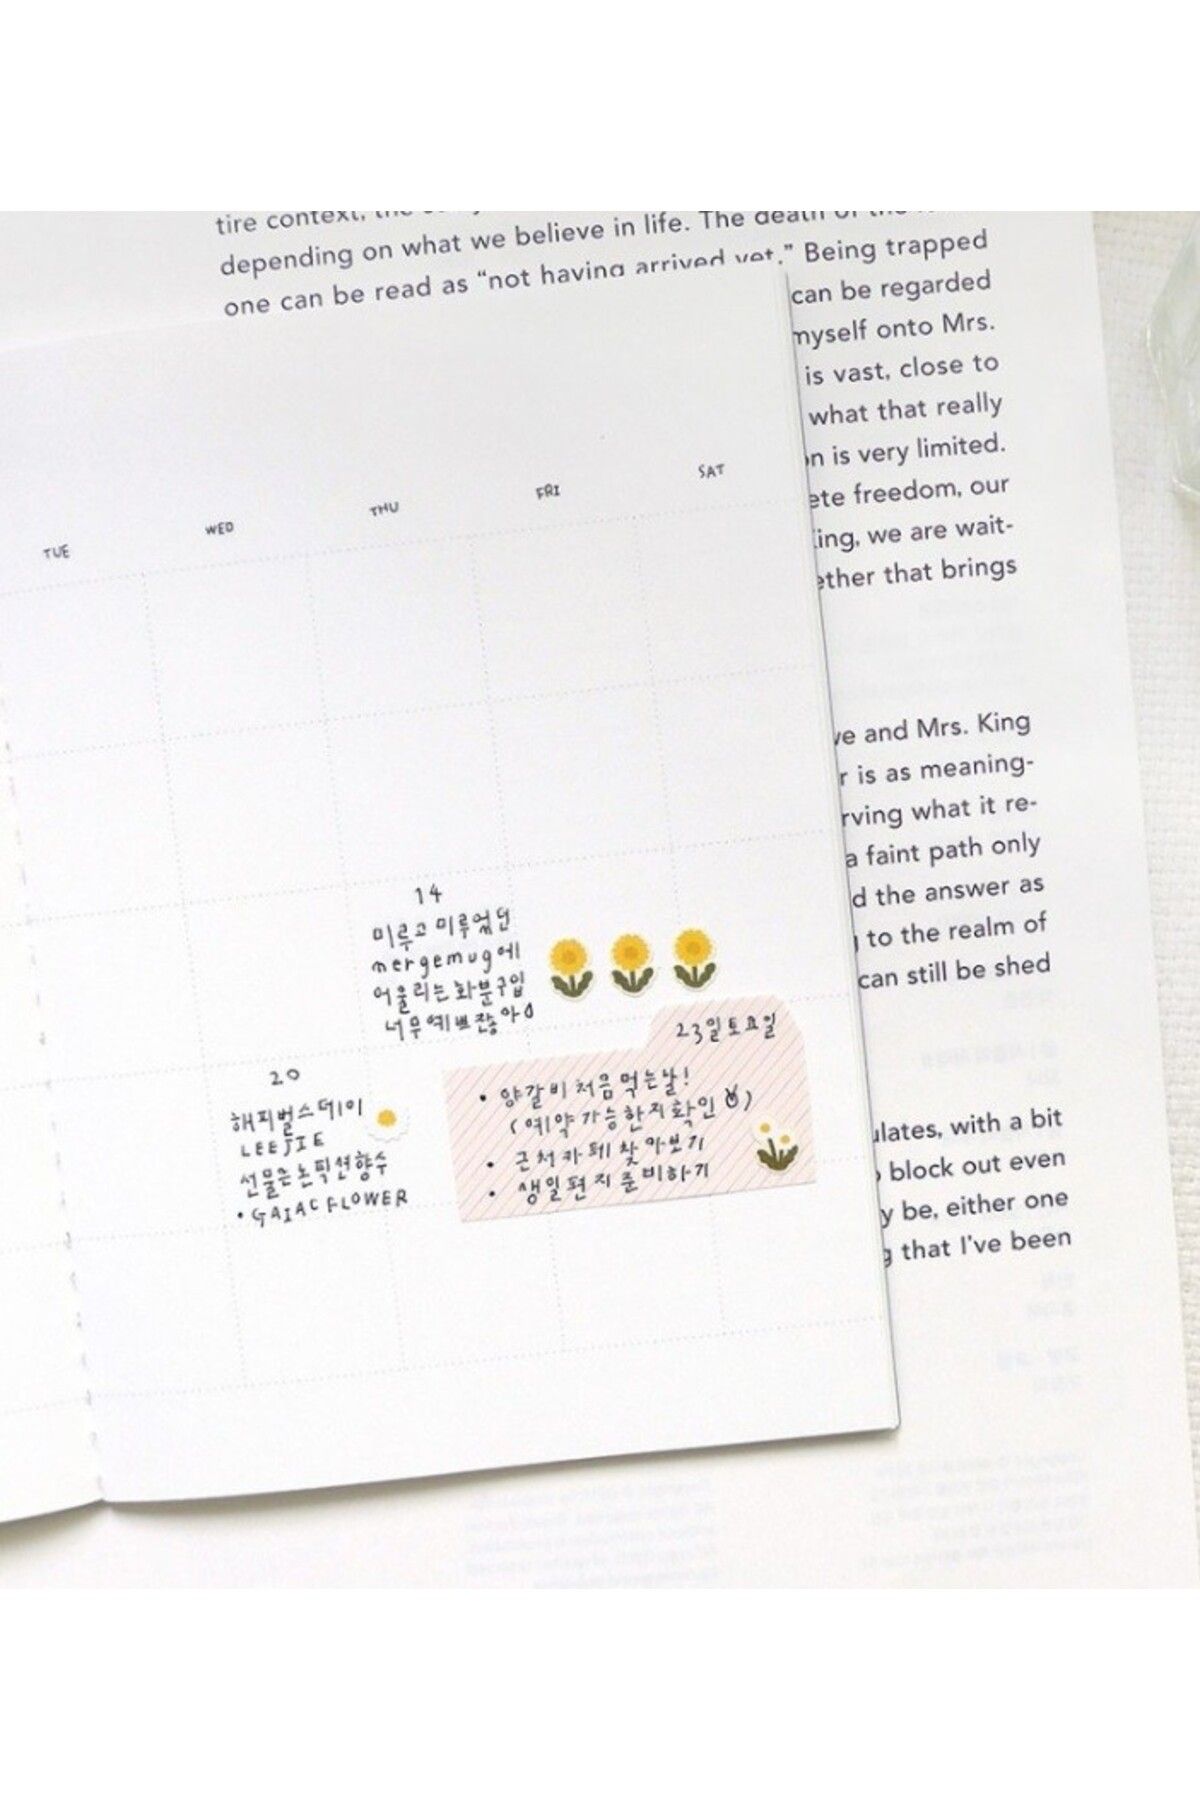 tire context, the
depending on what we believe in life. The death of the
one can be read as “not having arrived yet.” Being trapped
can be regarded
myself onto Mrs.
is vast, close to
what that really
is very limited.
freedom, our
we are wait-
that brings
and Mrs. King
is as meaning-
what it re-
a faint path only
the answer as
to the realm of
can still be shed
with a bit
block out even
be, either one
that I've been
TUE WED THU FRI SAT
14
미루고 미루었던
mergemug에
어울리는 화분구입
너무 예쁘잖아
20
해피벌스데이
LEEJIE
선물은 논픽션향수
• GAIAC FLOWER
23일토요일
• 양갈비 처음 먹는날!
(예약가능한지확인 )
• 근처카페 찾아보기
• 생일편지준비하기